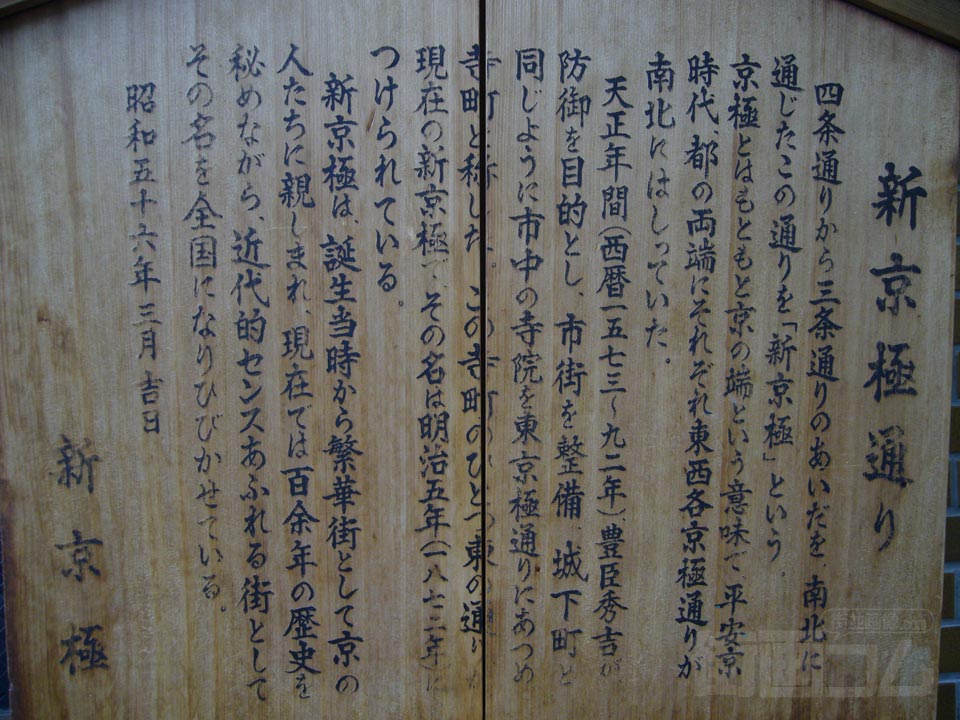 新京極通り
四条通りから三条通りのあいだを、南北に
通じたこの通りを「新京極」という。
京極とはもともと京の端という意味で、平安京
時代、都の両端にそれぞれ東西各京極通りが
南北にはしっていた。
天正年間(西暦一五七三~九二年)、豊臣秀吉が
防御を目的とし、市街を整備、城下町と
同じように市中の寺院を東京極通りにあつめ
寺町と称した。この寺町のひとつ東の通りが
現在の新京極で、その名は明治五年(一八七二年)に
つけられている。
新京極は、誕生当時から繁華街として京の
人たちに親しまれ、現在では百余年の歴史を
秘めながら、近代的センスあふれる街として
その名を全国になりひびかせている。
昭和五十六年三月吉日
新京極